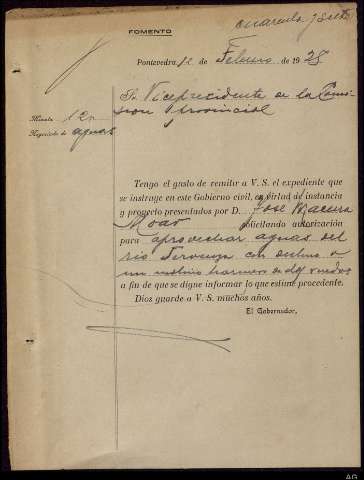 cuarenta y siete
FOMENTO
Pontevedra 12 de Febrero de 1925
Sr. Vicepresidente de la Comi-
sion provincial
Minuta 1
Negociado de aguas
Tengo el gusto de remitir a V. S. el expediente que
se instruye en este Gobierno civil, en virtud de instancia
y proyecto presentados por D. José
solicitando autorización
para aprovechar aguas del
río con destino a
un molino harinero de dos ruedas
a fin de que se digne informar lo que estime procedente.
Dios guarde a V. S. muchos años.
El Gobernador,
AG